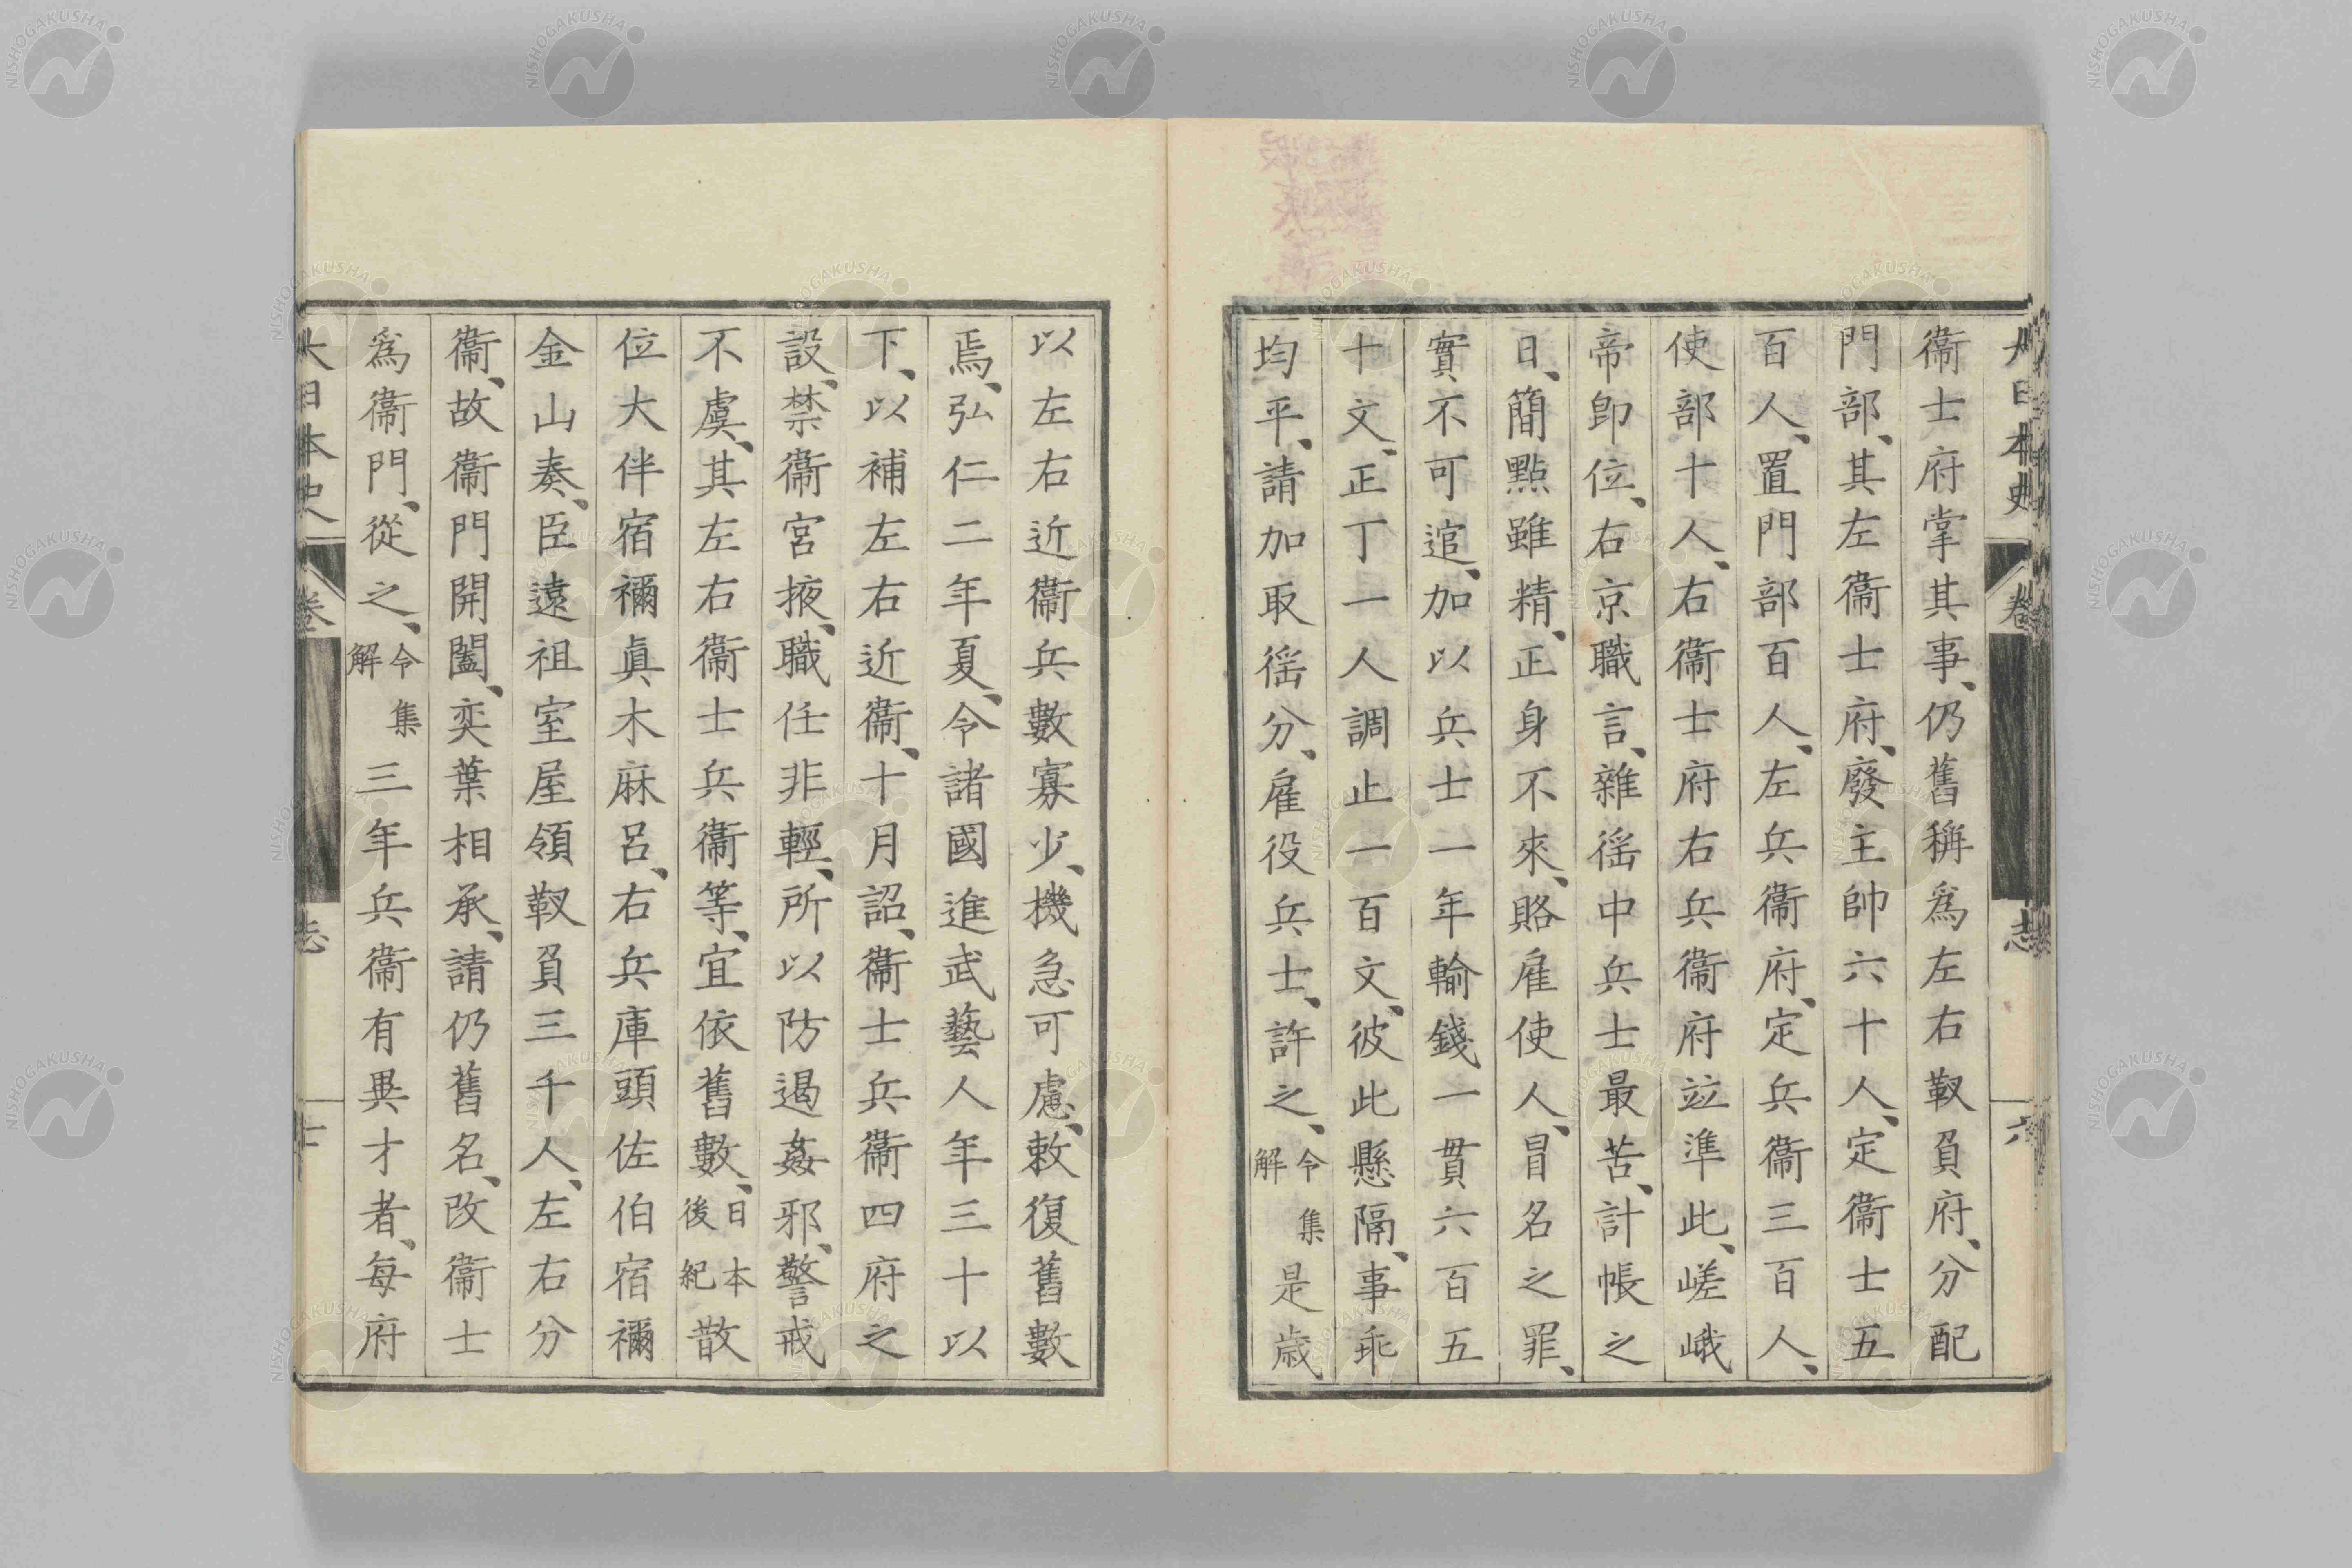 大日本史 卷 志 六
衞士府掌其事、仍舊稱爲左右靫負府、分配
門部、其左衞士府、廢主帥六十人、定衞士五
百人、置門部百人、左兵衞府、定兵衞三百人、
使部十人、右衞士府右兵衞府竝準此、嵯峨
帝卽位、右京職言、雜徭中兵士最苦、計帳之
日、簡點雖精、正身不來、賂雇使人、冒名之罪、
實不可逭、加以兵士一年輸錢一貫六百五
十文、正丁一人調止一百文、彼此懸隔、事乖
均平、請加取徭分、雇役兵士、許之、令集解是歲
以左右近衞兵數寡少、機急可慮、敕復舊數
焉、弘仁二年夏、令諸國進武藝人年三十以
下、以補左右近衞、十月詔、衞士兵衞四府之
設、禁衞宮掖、職任非輕、所以防遏姦邪、警戒
不虞、其左右衞士兵衞等、宜依舊數、日本後紀散
位大伴宿禰眞木麻呂、右兵庫頭佐伯宿禰
金山奏、臣遠祖室屋領靫負三千人、左右分
衞、故衞門開闔、奕葉相承、請仍舊名、改衞士
爲衞門、從之、令集解三年兵衞有異才者、每府
大日本史 卷 志 七
NISHOGAKUSHA